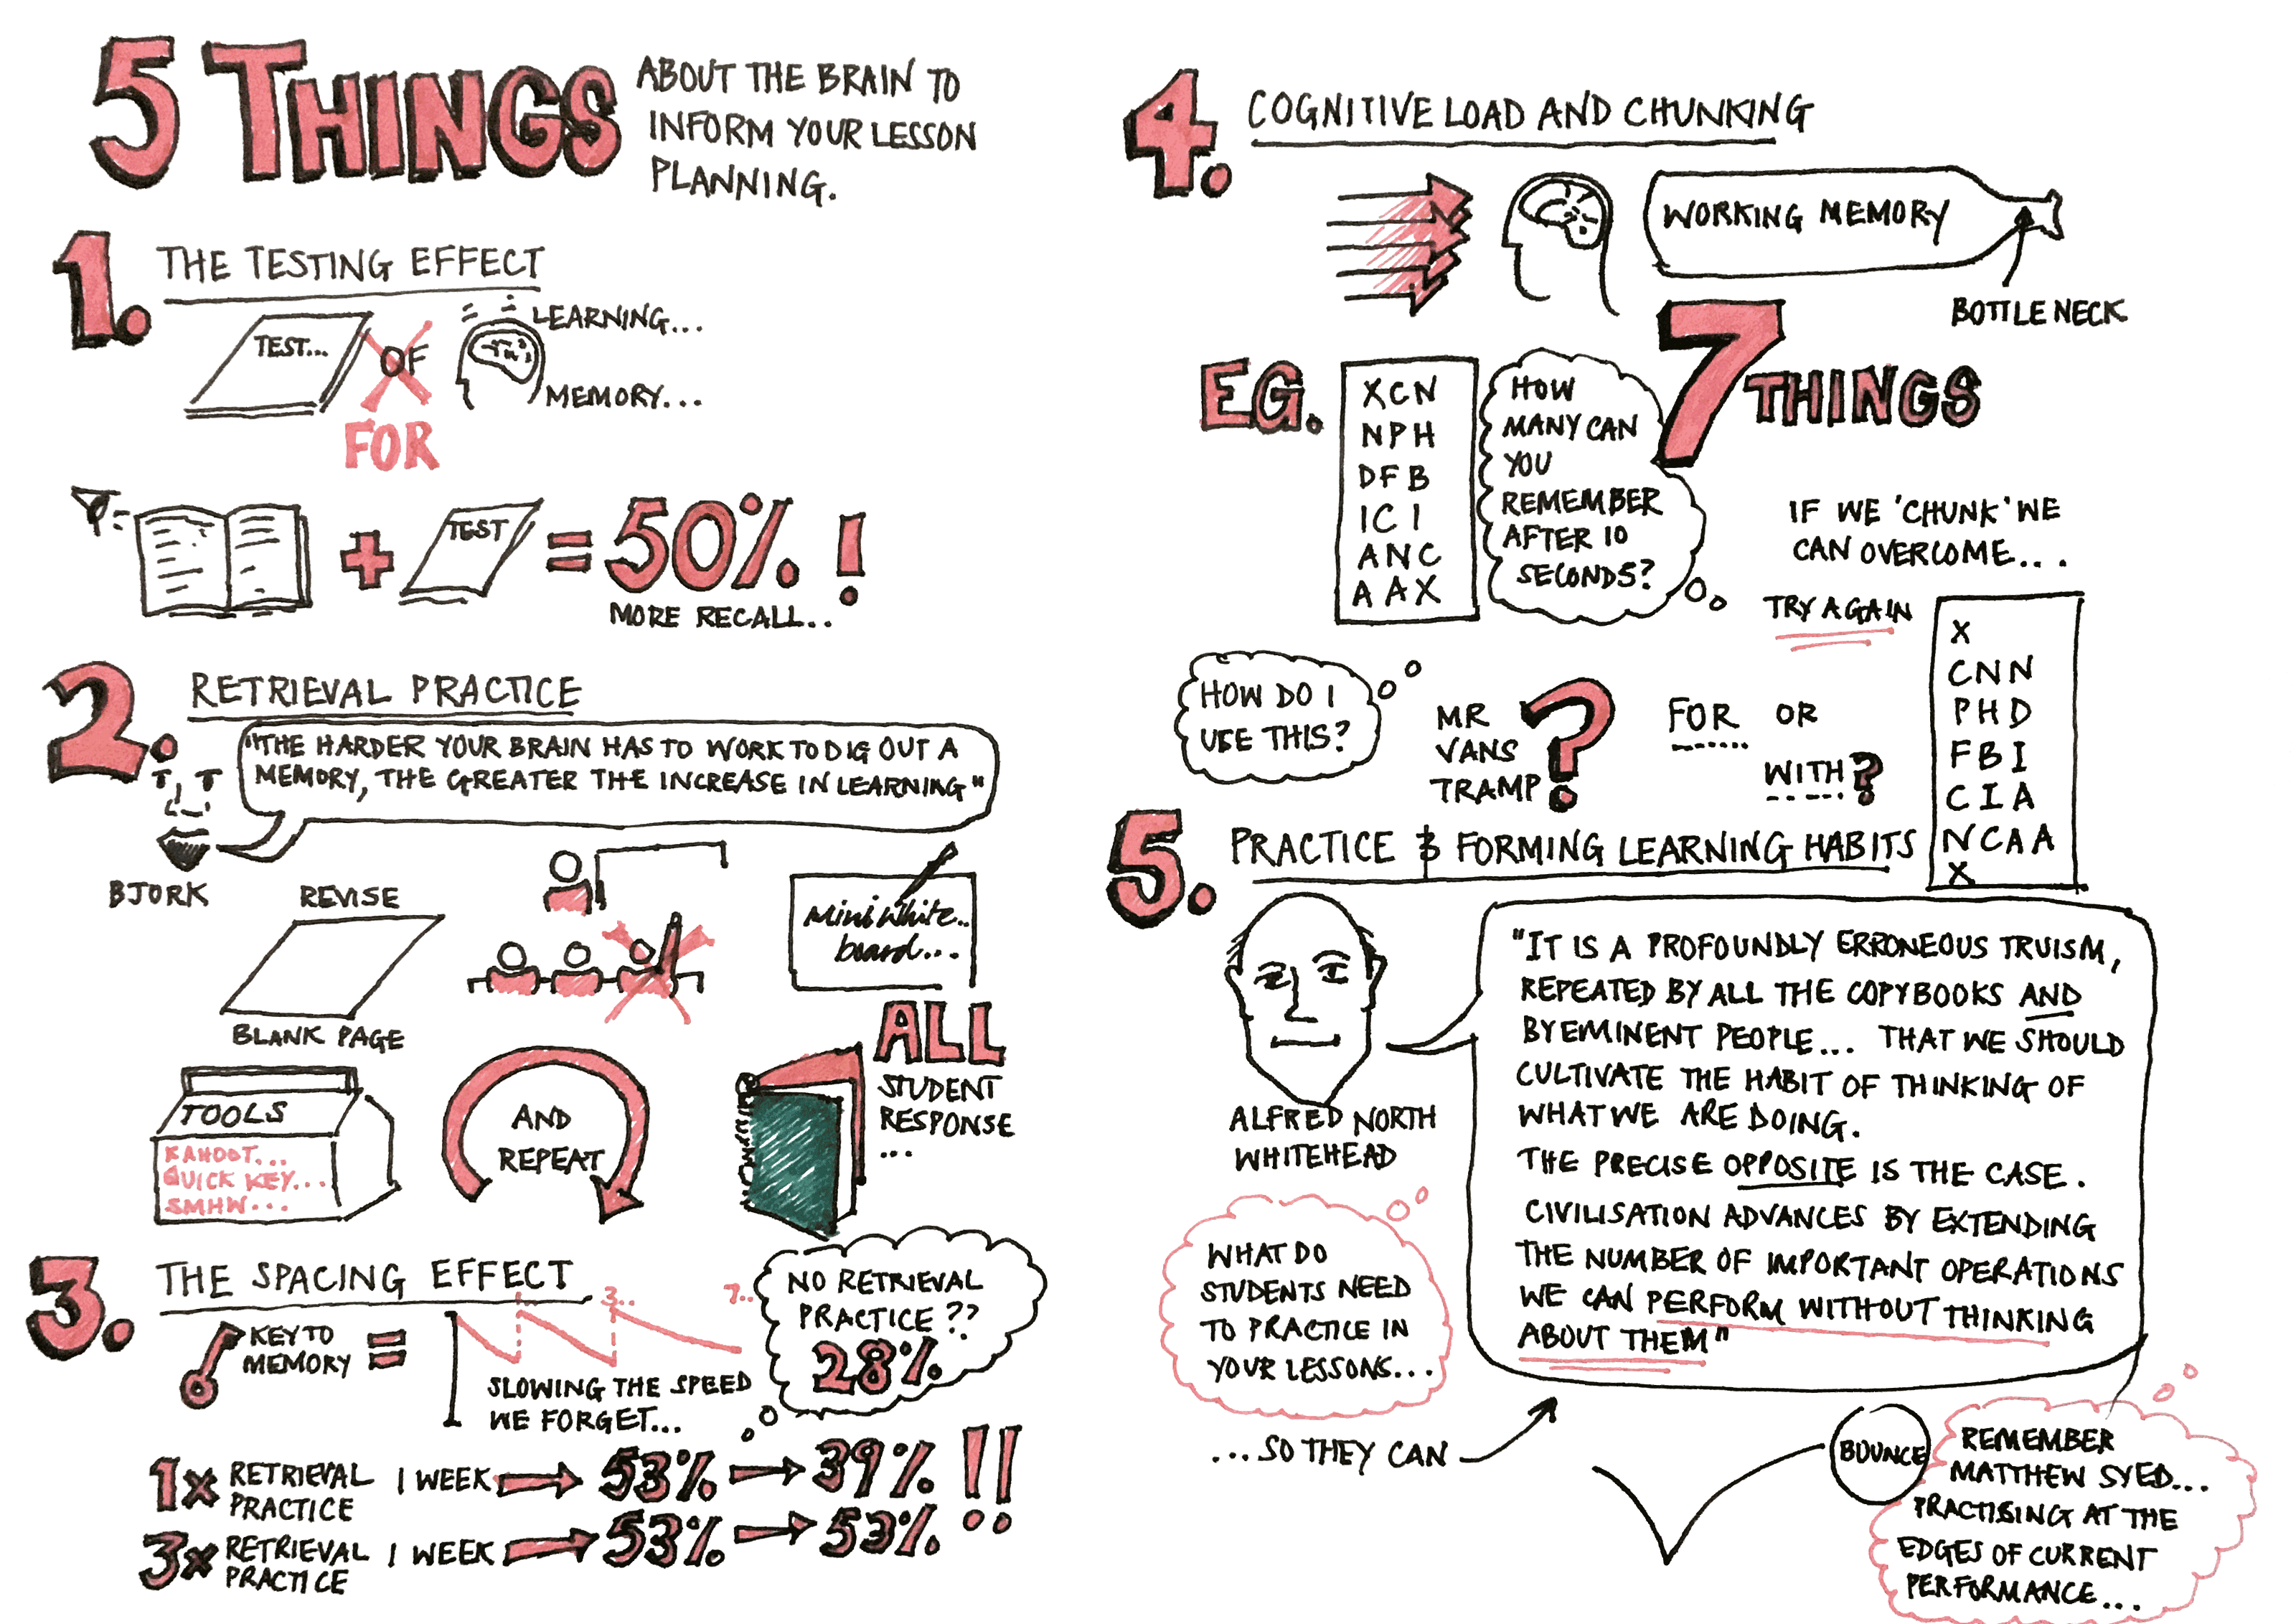 5 THINGS
ABOUT THE BRAIN TO
INFORM YOUR LESSON
PLANNING.
1.
THE TESTING EFFECT
TEST...
OF
FOR
LEARNING...
MEMORY...
+
TEST
= 50% !
MORE RECALL..
2.
RETRIEVAL PRACTICE
"THE HARDER YOUR BRAIN HAS TO WORK TO DIG OUT A
MEMORY, THE GREATER THE INCREASE IN LEARNING"
BJORK
REVISE
BLANK PAGE
Mini White..
board...
TOOLS
KAHOOT...
QUICK KEY...
SMHW...
AND
REPEAT
ALL
STUDENT
RESPONSE
...
3.
THE SPACING EFFECT
KEY TO
MEMORY
=
3..
7..
SLOWING THE SPEED
WE FORGET...
NO RETRIEVAL
PRACTICE??
28%
1x RETRIEVAL
PRACTICE
1 WEEK
53%
39% !!
3x RETRIEVAL
PRACTICE
1 WEEK
53%
53%
4.
COGNITIVE LOAD AND CHUNKING
WORKING MEMORY
BOTTLE NECK
7 THINGS
EG.
XCN
NPH
DFB
ICI
ANC
AAX
HOW
MANY CAN
YOU
REMEMBER
AFTER 10
SECONDS?
IF WE 'CHUNK' WE
CAN OVERCOME...
TRY AGAIN
X
CNN
PHD
FBI
CIA
NCAA
X
HOW DO I
USE THIS?
MR
VANS
TRAMP
?
FOR OR
WITH?
5.
PRACTICE & FORMING LEARNING HABITS
ALFRED NORTH
WHITEHEAD
"IT IS A PROFOUNDLY ERRONEOUS TRUISM,
REPEATED BY ALL THE COPYBOOKS AND
BY EMINENT PEOPLE... THAT WE SHOULD
CULTIVATE THE HABIT OF THINKING OF
WHAT WE ARE DOING.
THE PRECISE OPPOSITE IS THE CASE.
CIVILISATION ADVANCES BY EXTENDING
THE NUMBER OF IMPORTANT OPERATIONS
WE CAN PERFORM WITHOUT THINKING
ABOUT THEM"
WHAT DO
STUDENTS NEED
TO PRACTICE IN
YOUR LESSONS...
...SO THEY CAN
BOUNCE
REMEMBER
MATTHEW SYED...
PRACTISING AT THE
EDGES OF CURRENT
PERFORMANCE...